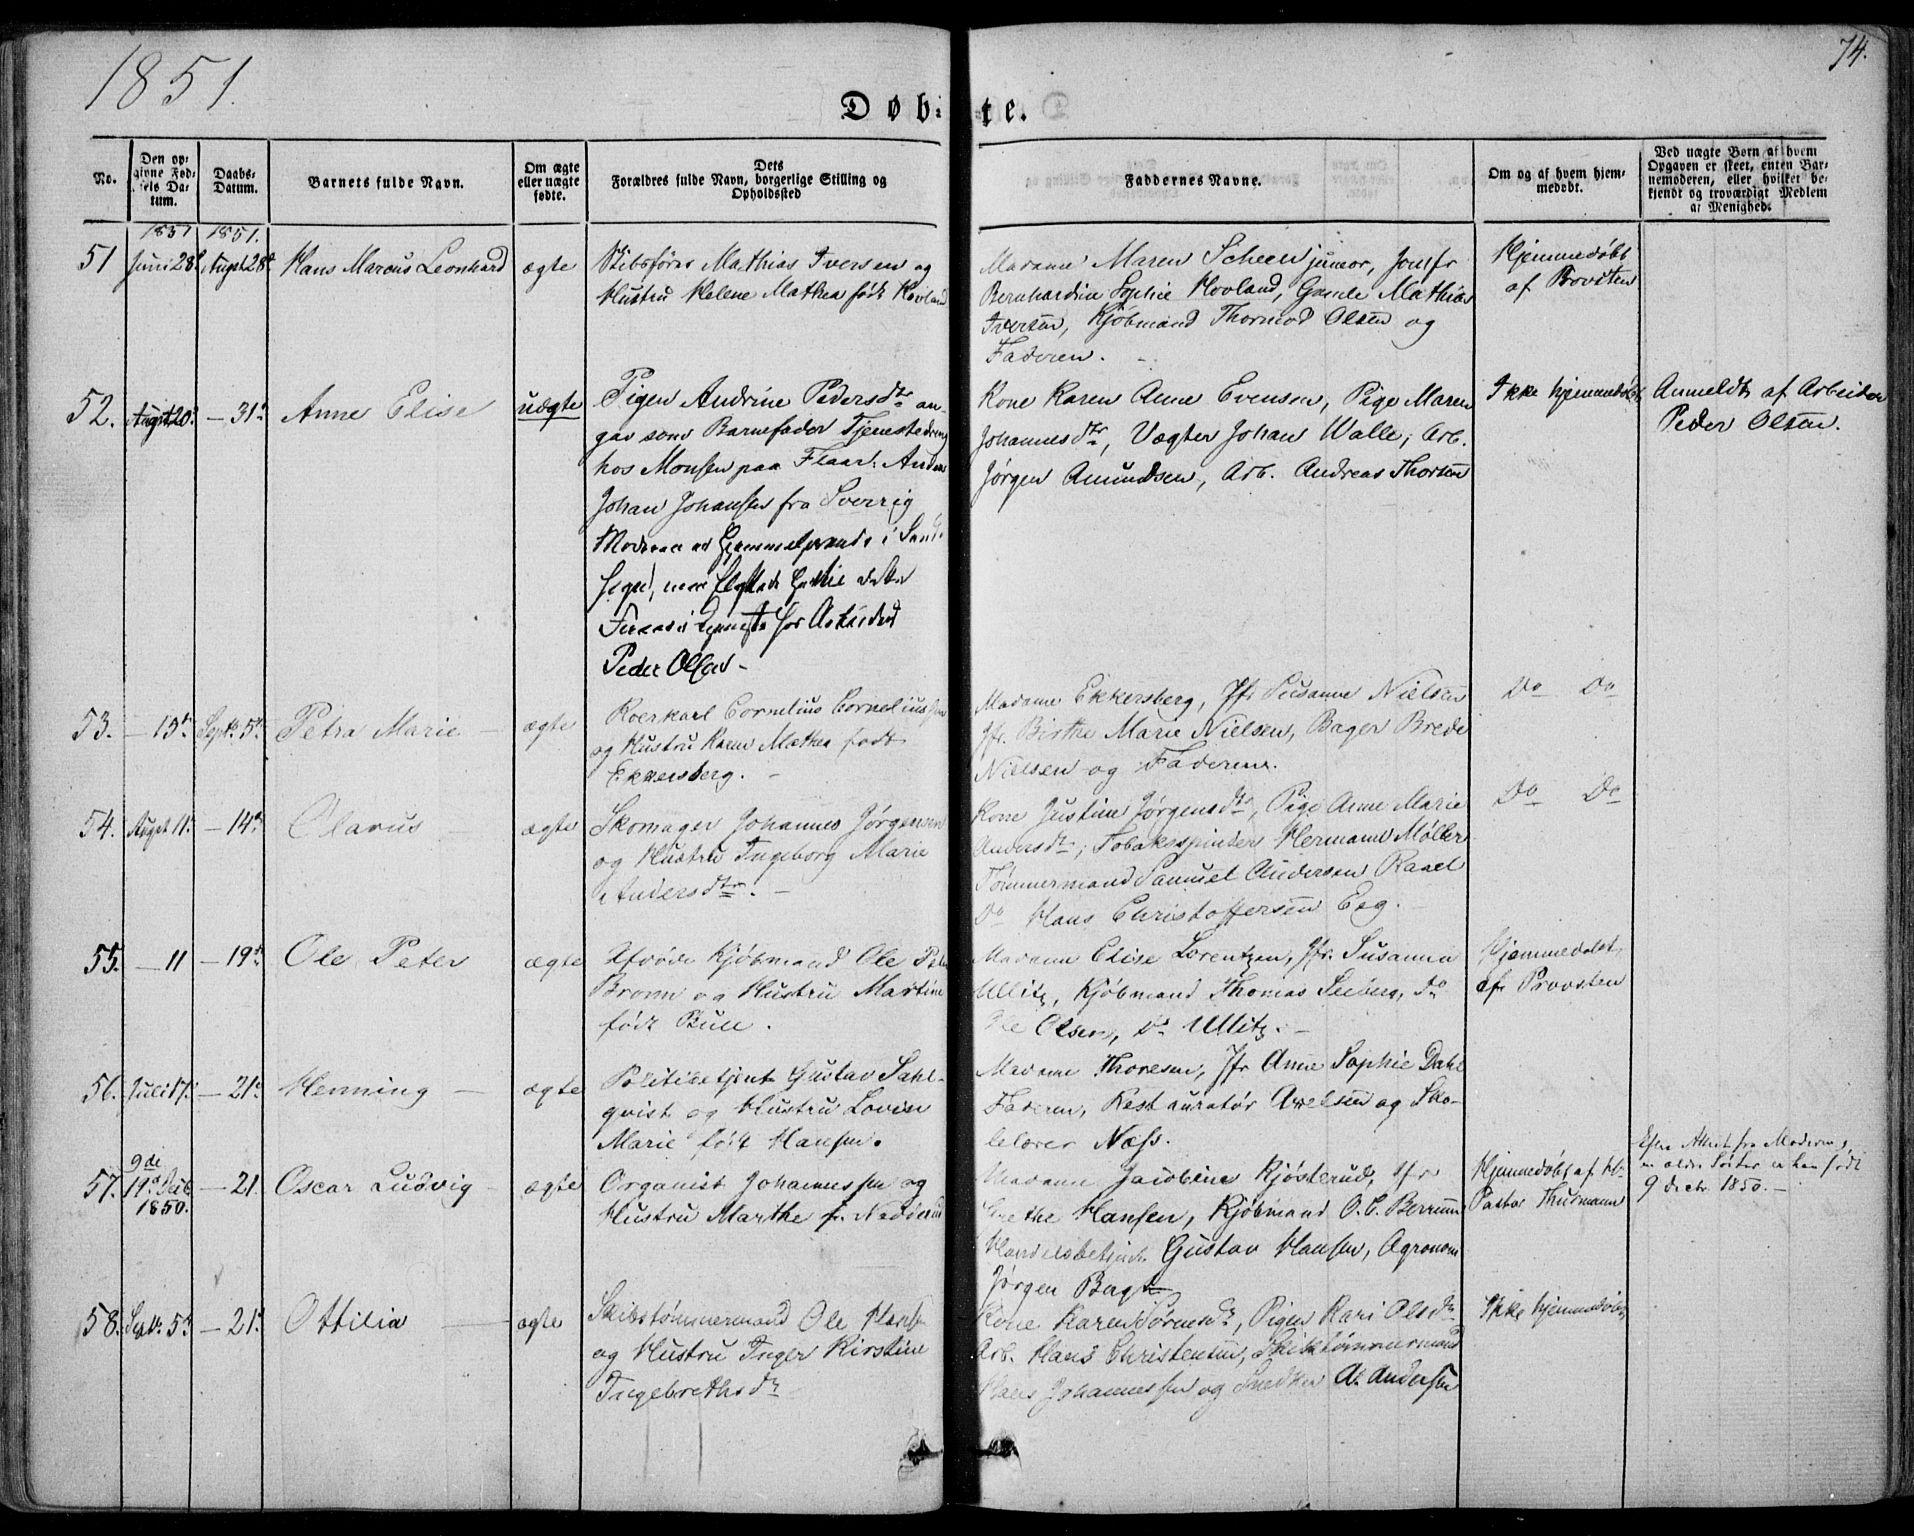 1851.
74.
Døb-
te.
No.
Den op-
givne Fød-
sels Da-
tum.
Daabs-
Datum.
Barnets fulde Navn.
Om ægte
eller uægte
fødte.
Dets
Forældres fulde Navn, borgerlige Stilling og
Opholdssted
Faddernes Navne.
Om og af hvem hjem-
medøbt.
Ved uægte Børn af hvem
Opgaven er skeet, enten Bar-
nemoderen, eller hvilket be-
kjendt og troværdigt Medlem
af Menighed.
1851 1851.
51 Juni 28 August 28 Hans Marcus Leonhard ægte
Skibsfører Mathias Iversen og
Hustru Helene Mathea født Hovland
Madame Maren Scheen junior, Jomfr
Bernhardine Sophie Hovland, Gamle Mathias
Iversen, Kjøbmand Thormod Olsen og
Faderen.
Hjemmedøbt
af Provsten
52. August 20. — 31. Anne Elise uægte
Pigen Andrine Pedersdtr an-
gav som Barnefader Tjenestedreng
hos Monsen paa
Johan Johansen fra Sverrig
i Sand
for Arbeider
Peder Olsen -
Kone Karen Anne Evensen, Pige Maren
Johannesdtr, Vægter Johan Walle, Arb.
Jørgen Amundsen, Arb. Andreas Thorsen
Ikke hjemmedøbt
Anmeldt af Arbeider
Peder Olsen.
53. — 15 Septb. 5 Petra Marie — ægte
Roerkarl Cornelius Corneliussen
og Hustru Karen Mathea født
Ekkersberg. -
Madame Ekkersberg, Jfr. Susanne Nielsen
Jfr. Birthe Marie Nielsen, Bager Brede
Nielsen og Faderen.
Do Do
54. August 11. — 14 Olavus — ægte
Skomager Johannes Jørgensen
og Hustru Ingeborg Marie
Andersdtr. -
Kone Justine Jørgensdtr, Pige Anne Marie
Andersdtr, Tobaksspinder Hermann Møller
Tømmermand Samuel Andersen
Do Hans Christoffersen Eeg.
Do Do
55. — 11 — 19 Ole Peter ægte
Kjøbmand Ole Peter
Bromn og Hustru Martine
født Bull.
Madame Elise Lorentzen, Jfr. Susanna
Ullitz, Kjøbmand Thomas Seeberg, do
Ole Olsen, do Ullitz. -
Hjemmedøbt
af Provsten
56. Juli 17. — 21 Henning — ægte
Politibetjent Gustav Sahl-
qvist og Hustru Lovise
Marie født Hansen.
Madame Thoresen, Jfr Anne Sophie Dahl
Faderen, Restauratør Axelsen og Sko-
lelærer Næss.
57. 9de
19
1850. — 21. Oscar Ludvig — ægte
Organist Johannessen og
Hustru Marthe f. Nedderud
Madame Jacobine Kjøsterud, Jfr
Grethe Hansen, Kjøbmand O. C. Berrum
Handelsbetjent Gustav Hansen, Agronom
Jørgen Bugt
Hjemmedøbt af H.
Pastor Thurmann
Efter Attest fra Moderen,
en ældre Søster er han født
9 decbr. 1850. —
58. Septb. 5 — 21. Ottilia — ægte
Skibstømmermand Ole Hansen
og Hustru Inger Kirstine
Ingebrethsdtr
Kone Karen Sørensdtr, Pigen Kari Olsdtr
Arb. Hans Christensen, Skibstømmermand
Hans Johannessen og Snedker A. Andersen
Ikke hjemmedøbt